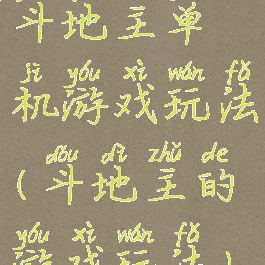 斗地主单
jī yóu xì wán fǎ
机游戏玩法
dòu dì zhǔ de
(斗地主的
yóu xì wán fǎ
游戏玩法)